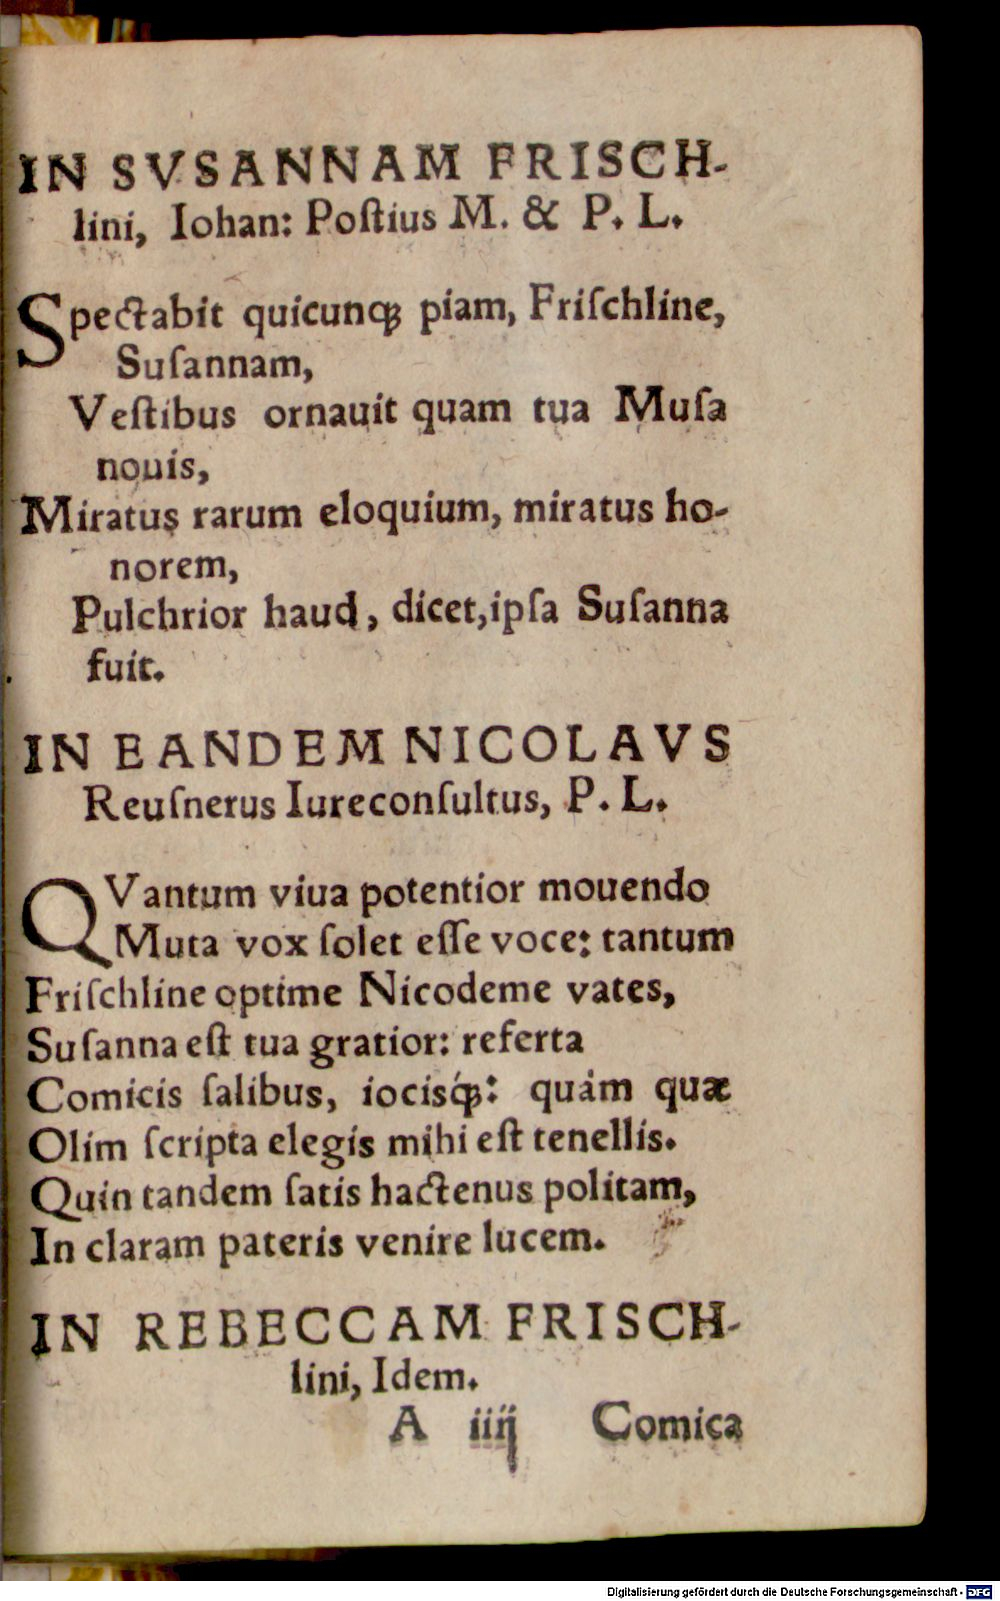 IN SVSANNAM FRISCH-
lini, Iohan: Poſtius M. & P. L.
Spectabit quicunq; piam, Friſchline,
Suſannam,
Veſtibus ornauit quam tua Muſa
nouis,
Miratus rarum eloquium, miratus ho-
norem,
Pulchrior haud, dicet,ipſa Suſanna
fuit.
IN EANDEM NICOLAVS
Reuſnerus Iureconſultus, P. L.
QVantum viua potentior mouendo
Muta vox ſolet eſſe voce: tantum
Friſchline optime Nicodeme vates,
Suſanna eſt tua gratior: referta
Comicis ſalibus, iocisq́;: quàm quæ
Olim ſcripta elegis mihi eſt tenellis.
Quin tandem ſatis hactenus politam,
In claram pateris venire lucem.
IN REBECCAM FRISCH-
lini, Idem.
A iiij Comica
Digitalisierung gefördert durch die Deutsche Forschungsgemeinschaft - DFG